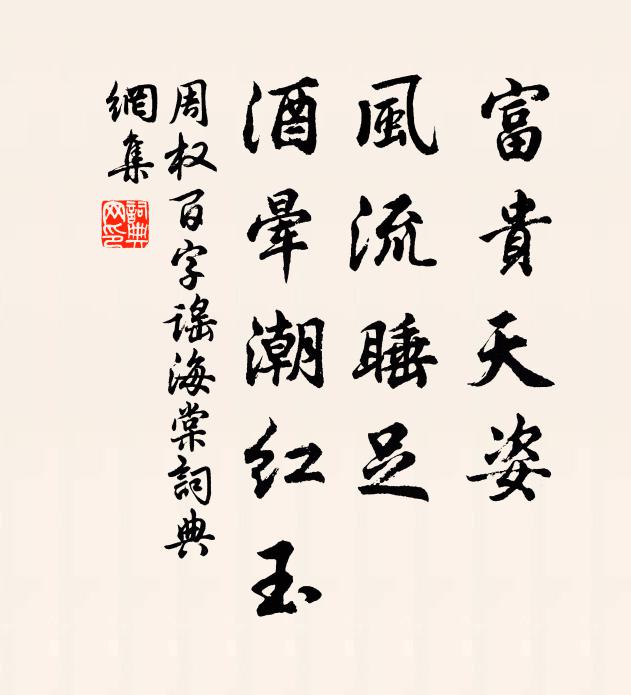 富貴天姿
風流睡足
酒暈潮紅玉
周权百字謠海棠詞典
網集
詞典
网印